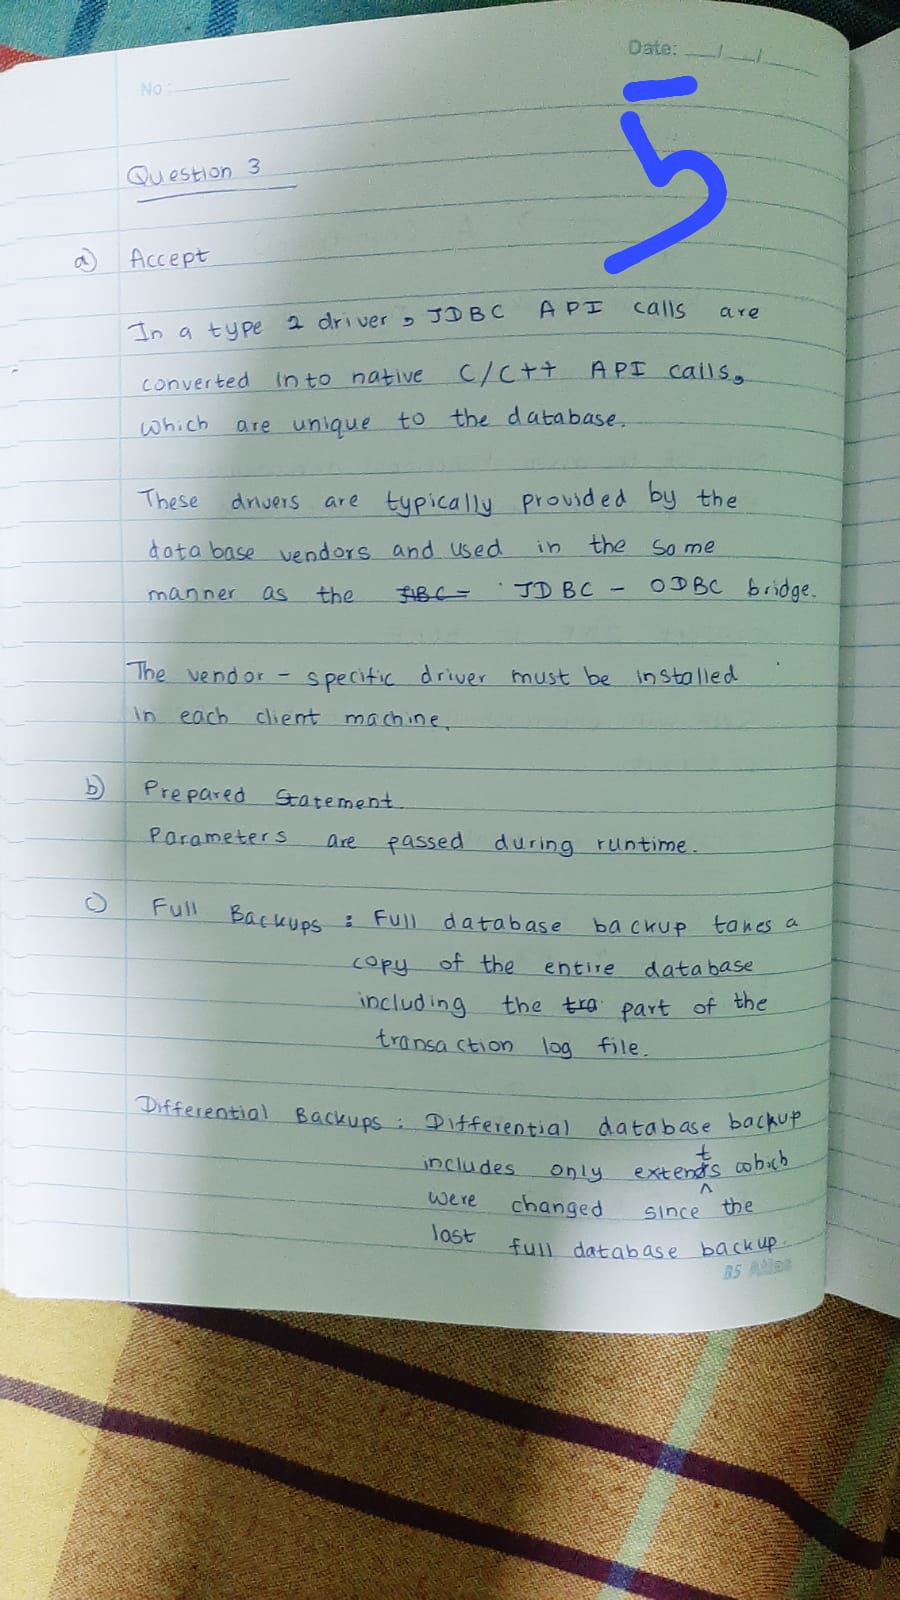 Date: __/__/__
No :
5
Question 3
a) Accept
In a type 2 driver, JDBC API calls are
converted into native C/C++ API calls,
which are unique to the database.
These drivers are typically provided by the
database vendors and used in the same
manner as the JDBC - ODBC bridge.
The vendor - specific driver must be installed
in each client machine.
b) Prepared Statement
Parameters are passed during runtime.
c) Full Backups : Full database backup takes a
copy of the entire database
including the part of the
transaction log file.
Differential Backups : Differential database backup
includes only extents which
were changed since the
last full database backup.
B5 Atlas